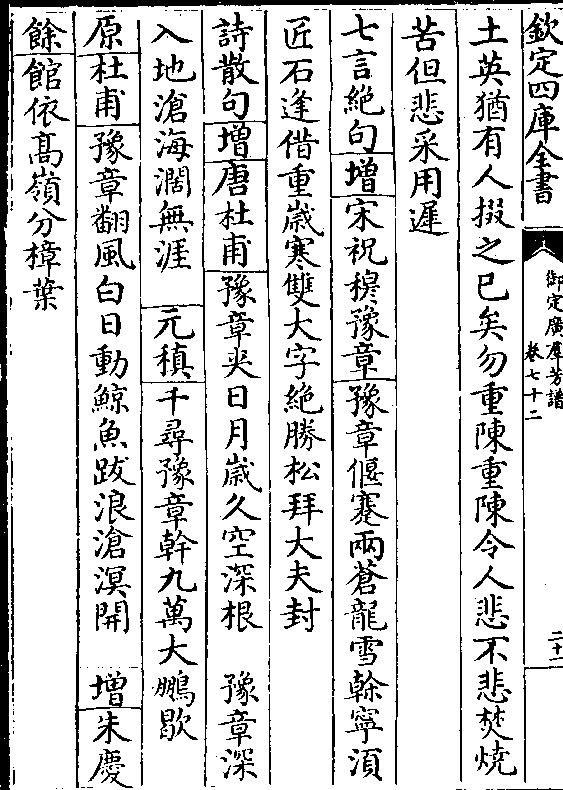 欽定四庫全書
御定廣羣芳譜
卷七十二
二十二
土英猶有人掇之已矣勿重陳重陳令人悲不悲焚燒
苦但悲采用遲
七言絶句增宋祝穆豫章豫章偃蹇兩蒼龍雪榦寧湏
匠石逢借重嵗寒雙大字絶勝松拜大夫封
詩散句增唐杜甫豫章夾日月嵗久空深根 豫章深
入地滄海濶無涯 元稹千尋豫章幹九萬大鵬歇
原杜甫豫章翻風白日動鯨魚跋浪滄溟開 增朱慶
餘館依髙嶺分樟葉